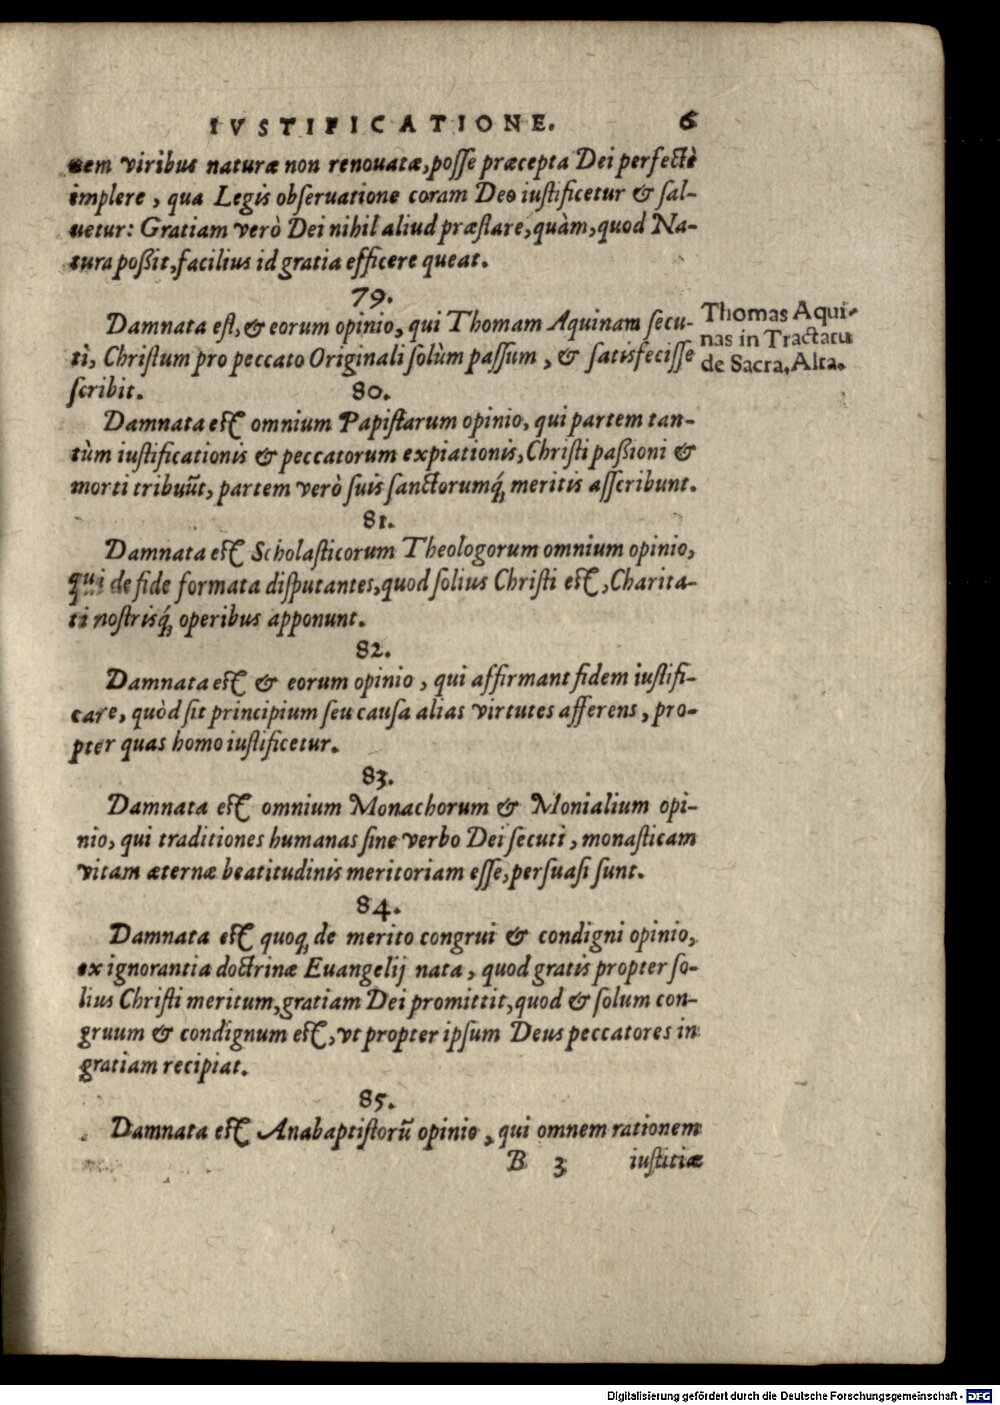 IVSTIFICATIONE. 6
nem viribus naturæ non renouatæ, posse præcepta Dei perfectè
implere, qua Legis obseruatione coram Deo iustificetur & sal-
uetur: Gratiam verò Dei nihil aliud præstare, quàm, quod Na-
tura poßit, facilius id gratia efficere queat.
79.
Damnata est, & eorum opinio, qui Thomam Aquinam secu-
ti, Christum pro peccato Originali solùm passum, & satisfecisse
scribit.
Thomas Aqui-
nas in Tractatu
de Sacra, Alta.
80.
Damnata est omnium Papistarum opinio, qui partem tan-
tùm iustificationis & peccatorum expiationis, Christi paßioni &
morti tribuūt, partem verò suis sanctorumq́; meritis asscribunt.
81.
Damnata est Scholasticorum Theologorum omnium opinio,
qui de fide formata disputantes, quod solius Christi est, Charita-
ti nostrisq́; operibus apponunt.
82.
Damnata est & eorum opinio, qui affirmant fidem iustifi-
care, quòd sit principium seu causa alias virtutes afferens, pro-
pter quas homo iustificetur.
83.
Damnata est omnium Monachorum & Monialium opi-
nio, qui traditiones humanas sine verbo Dei secuti, monasticam
vitam æternæ beatitudinis meritoriam esse, persuasi sunt.
84.
Damnata est quoq; de merito congrui & condigni opinio,
ex ignorantia doctrinæ Euangelij nata, quod gratis propter so-
lius Christi meritum, gratiam Dei promittit, quod & solum con-
gruum & condignum est, vt propter ipsum Deus peccatores in
gratiam recipiat.
85.
Damnata est Anabaptistorū opinio, qui omnem rationem
B 3 iustitiæ
Digitalisierung gefördert durch die Deutsche Forschungsgemeinschaft - DFG